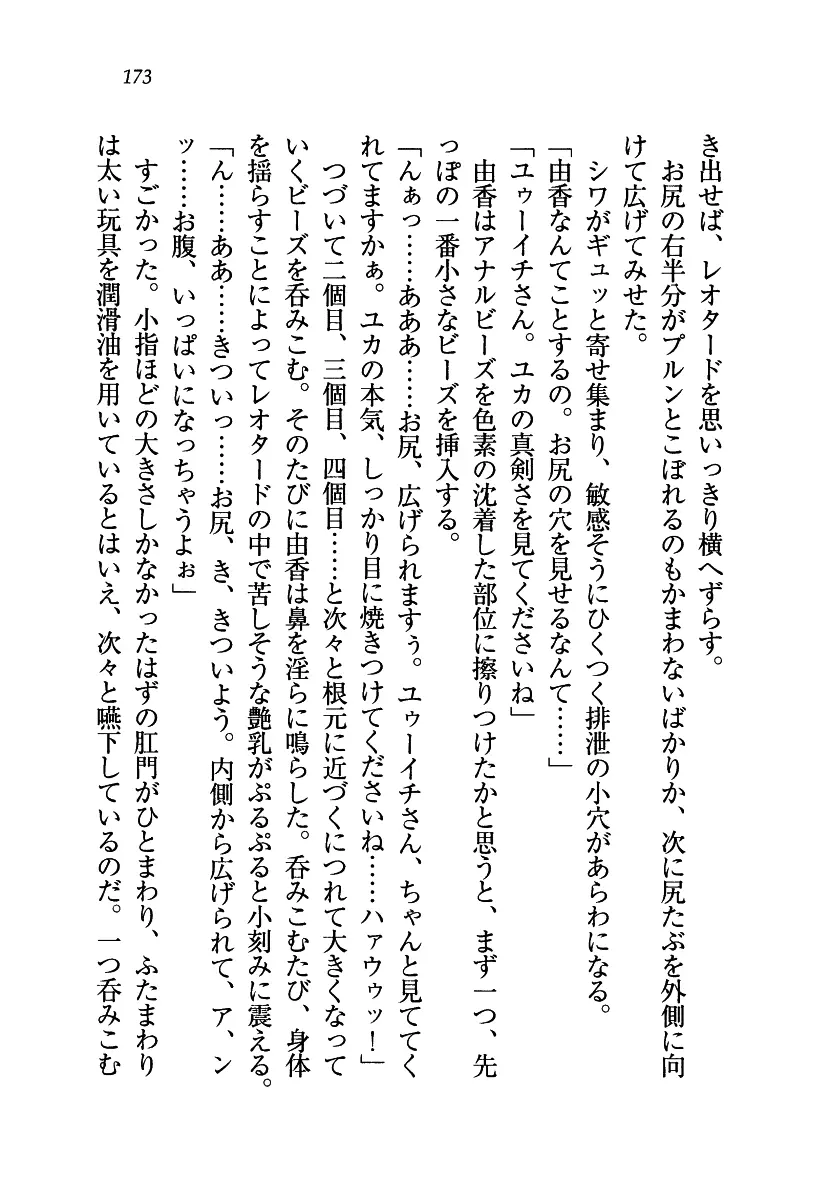 173
き出せば、レオタードを思いっきり横へずらす。
お尻の右半分がプルンとこぼれるのもかまわないばかりか、次に尻たぶを外側に向
けて広げてみせた。
シワがギュッと寄せ集まり、敏感そうにひくつく排泄の小穴があらわになる。
「由香なんてことするの。お尻の穴を見せるなんて……」
「ユゥーイチさん。ユカの真剣さを見てくださいね」
由香はアナルビーズを色素の沈着した部位に擦りつけたかと思うと、まず一つ、先
っぽの一番小さなビーズを挿入する。
「んぁっ……あああ……お尻、広げられますぅ。ユゥーイチさん、ちゃんと見ててく
れてますかぁ。ユカの本気、しっかり目に焼きつけてくださいね……ハァウゥッ！」
つづいて二個目、三個目、四個目……と次々と根元に近づくにつれて大きくなって
いくビーズを呑みこむ。そのたびに由香は鼻を淫らに鳴らした。呑みこむたび、身体
を揺らすことによってレオタードの中で苦しそうな艶乳がぷるぷると小刻みに震える。
「ん……ああ……きついっ……お尻、き、きついよう。内側から広げられて、ア、ン
ッ……お腹、いっぱいになっちゃうよぉ」
すごかった。小指ほどの大きさしかなかったはずの肛門がひとまわり、ふたまわり
は太い玩具を潤滑油を用いているとはいえ、次々と嚥下しているのだ。一つ呑みこむ